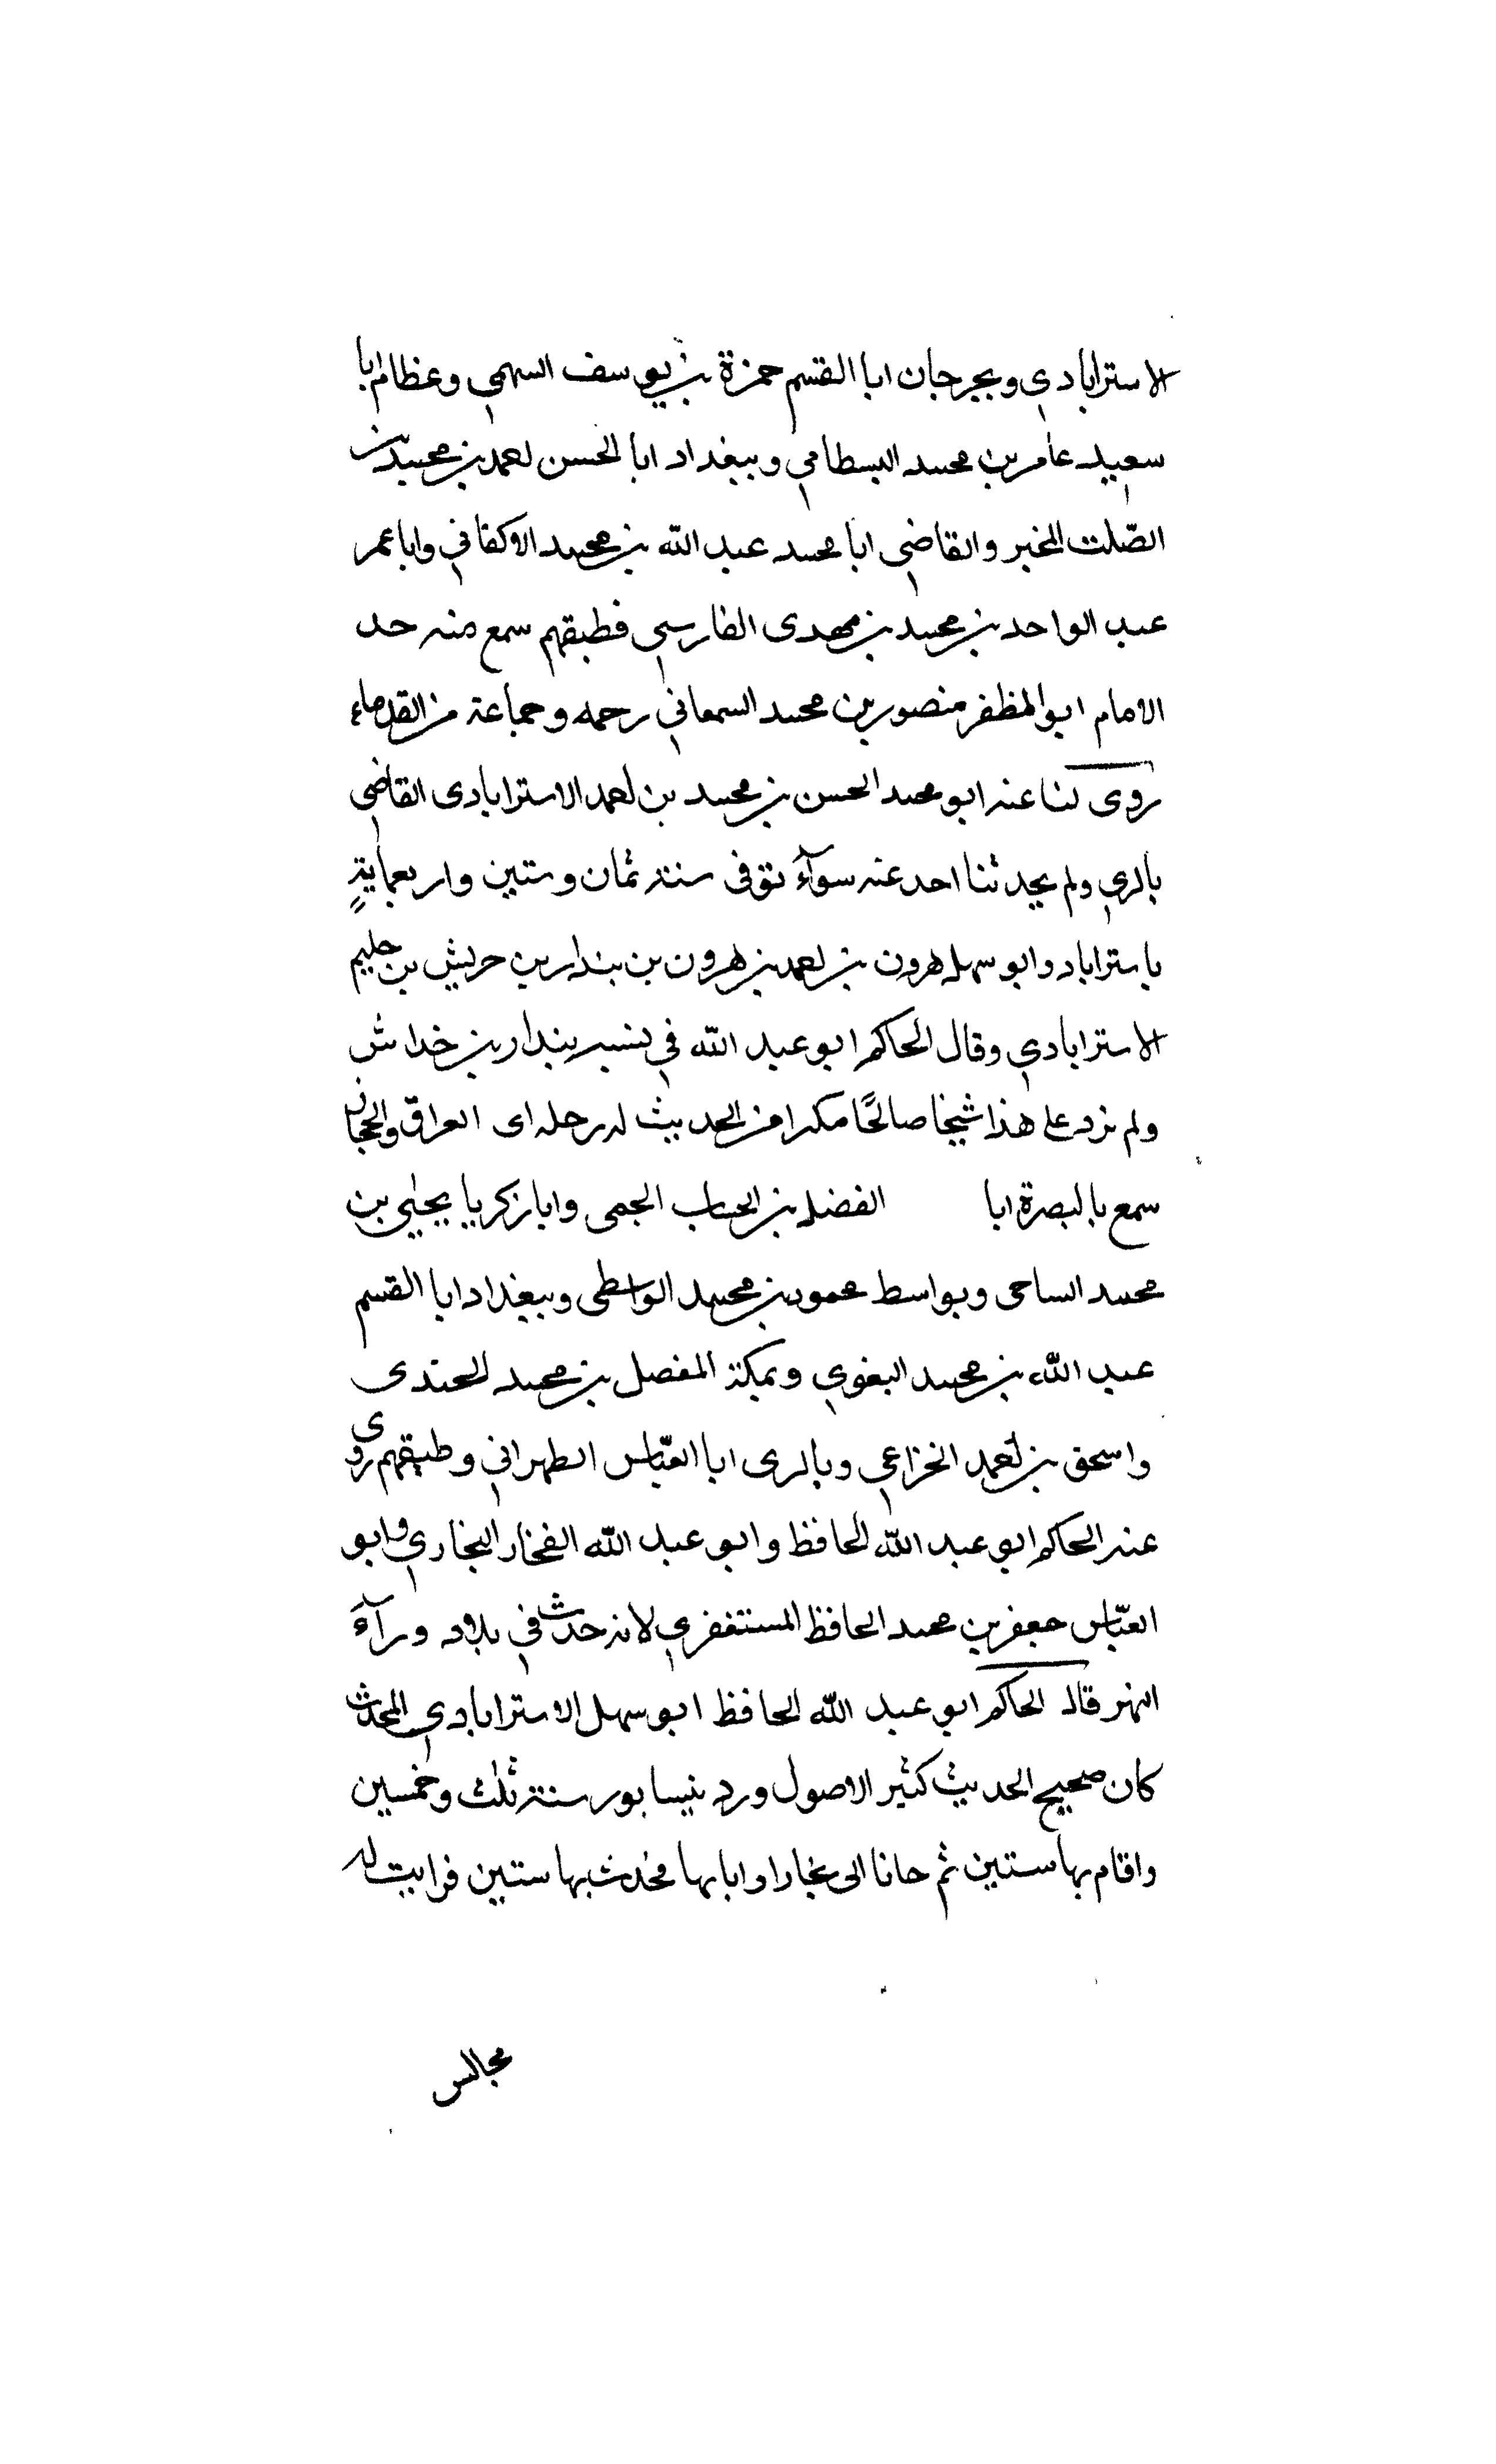 الاسترابادي وبجرجان ابا القسم حمزة بن يوسف السهمي وعظام ابا
سعيد عامر بن محمد البسطامي وببغداد ابا الحسن احمد بن محمد بن
الصّلت المخبر والقاضي ابا محمد عبد الله بن محمد الاكفاني وابا عمر
عبد الواحد بن محمد بن مهدى الفارسي فطبقهم سمع منه حد
الامام ابو المظفر منصور بن محمد السمعاني رحمه وجماعة من القدماء
روى لنا عنه ابو محمد الحسن بن محمد بن احمد الاسترابادى القاضي
بالري ولم يحدثنا احد عنه سوآء توفى سنة ثمان وستين واربعماية
باستراباد وابو سهل هرون بن احمد بن هرون بن بندار بن حريش بن حليم
الاسترابادي وقال الحاكم ابو عبد الله في نسبه بندار بن خداش
ولم نزد على هذا شيخا صالحًا مكرا من الحديث له رحله اى العراق والحجاز
سمع بالبصرة ابا الفضل بن الحباب الجمحى وابا زكريا يحيٰي بن
محمد الساحى وبواسط محمود بن محمد الواسطى وببغداد ابا القسم
عبد الله بن محمد البغوي وبمكة المفصل بن محمد الحندى
واسحق بن احمد الخزاعي وبالرى ابا العبّاس الطهراني وطبقهم روى
عنه الحاكم ابو عبد الله الحافظ وابو عبد الله الفخار البخاري وابو
العبّاس جعفر بن محمد الحافظ المستغفري لانه حدث في بلاد ورآء
النهر قال الحاكم ابو عبد الله الحافظ ابو سهل الاسترابادي المحدث
كان صحيح الحديث كثير الاصول ورد نيسابور سنة ثلث وخمسين
واقام بها ستين ثم حانا الى بخارا وابا بها فحدث بها ستين فرايت له
مجالس